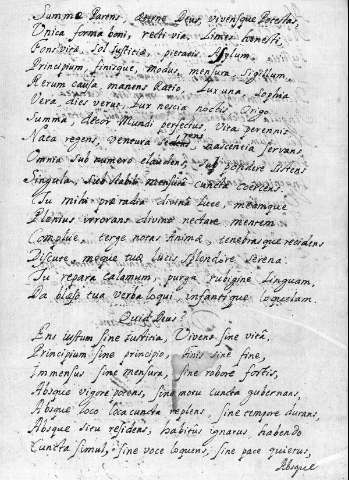 Summe Parens, æterne Deus, vivensque Potestas,
Unica forma boni, recti via, Limes honesti,
Fons vitæ, Sol Iustitiæ, pietatis Asylum
Principium, finisque, modus, mensura, Sigillum,
Rerum causa, manens Ratio, Lux una, Sophia
Vera, dies verus, Lux nescia noctis, Origo
Summa, decor Mundi perfectus, Vita perennis
Nata regens, ventura serens nascentia servans,
Omnia sub numero claudens, sub pondere sistens
Singula, sub stabili mensura cuncta coercens
Tu mihi præradia divina luce, meamque
Plenius irrorans divino nectare mentem
Complue, terge notas Animæ, tenebrasque recidens
Discute, meque tuæ lucis splendore serena.
Tu repara calamum, purga rubigine linguam,
Da blæso tua verba loqui, infantique loquelam.
Quid Deus?
Ens iustum sine Iustitia, Vivens sine vita,
Principium sine principio, finis sine fine,
Immensus sine mensura, sine robore fortis,
Absque vigore potens, sine motu cuncta gubernans,
Absque loco loca cuncta replens, sine tempore durans,
Absque situ residens, habitus ignarus habendo
Cuncta simul, sine voce loquens, sine pace quietus,
Absque